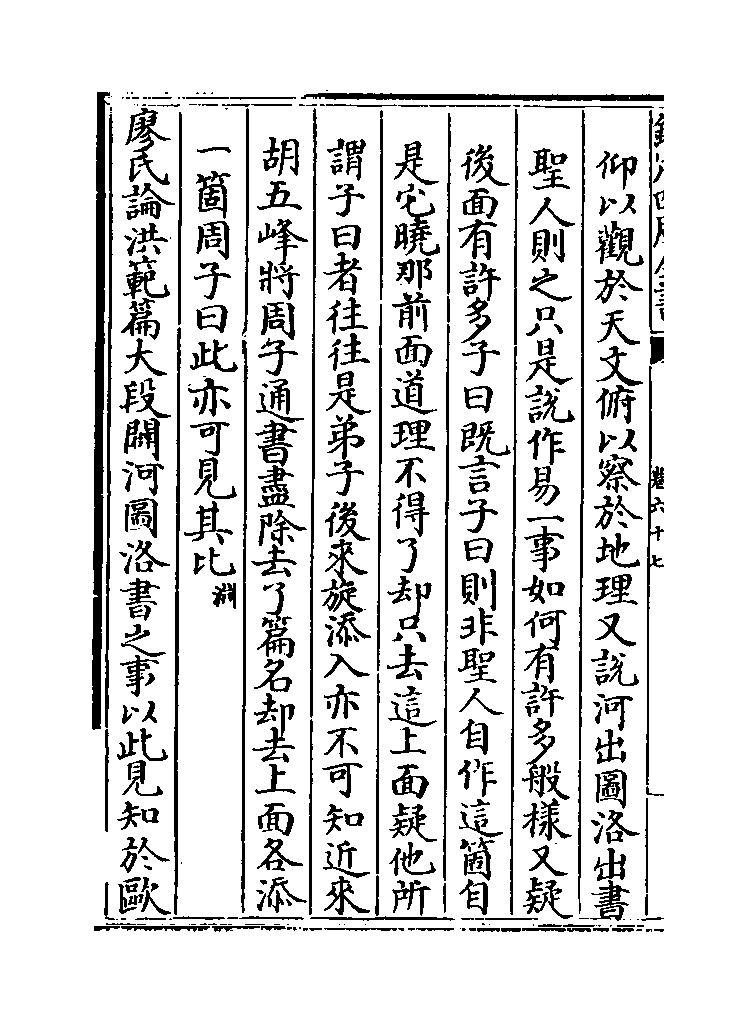 仰以觀於天文俯以察於地理又説河出圖洛出書
聖人則之只是説作易一事如何有許多般様又疑
後面有許多子曰既言子曰則非聖人自作這箇自
是它曉那前面道理不得了却只去這上面疑他所
謂子曰者往往是弟子後來旋添入亦不可知近來
胡五峰將周子通書盡除去了篇名却去上面各添
一箇周子曰此亦可見其比淵
廖氏論洪範篇大段闢河圖洛書之事以此見知於歐
卷六十七